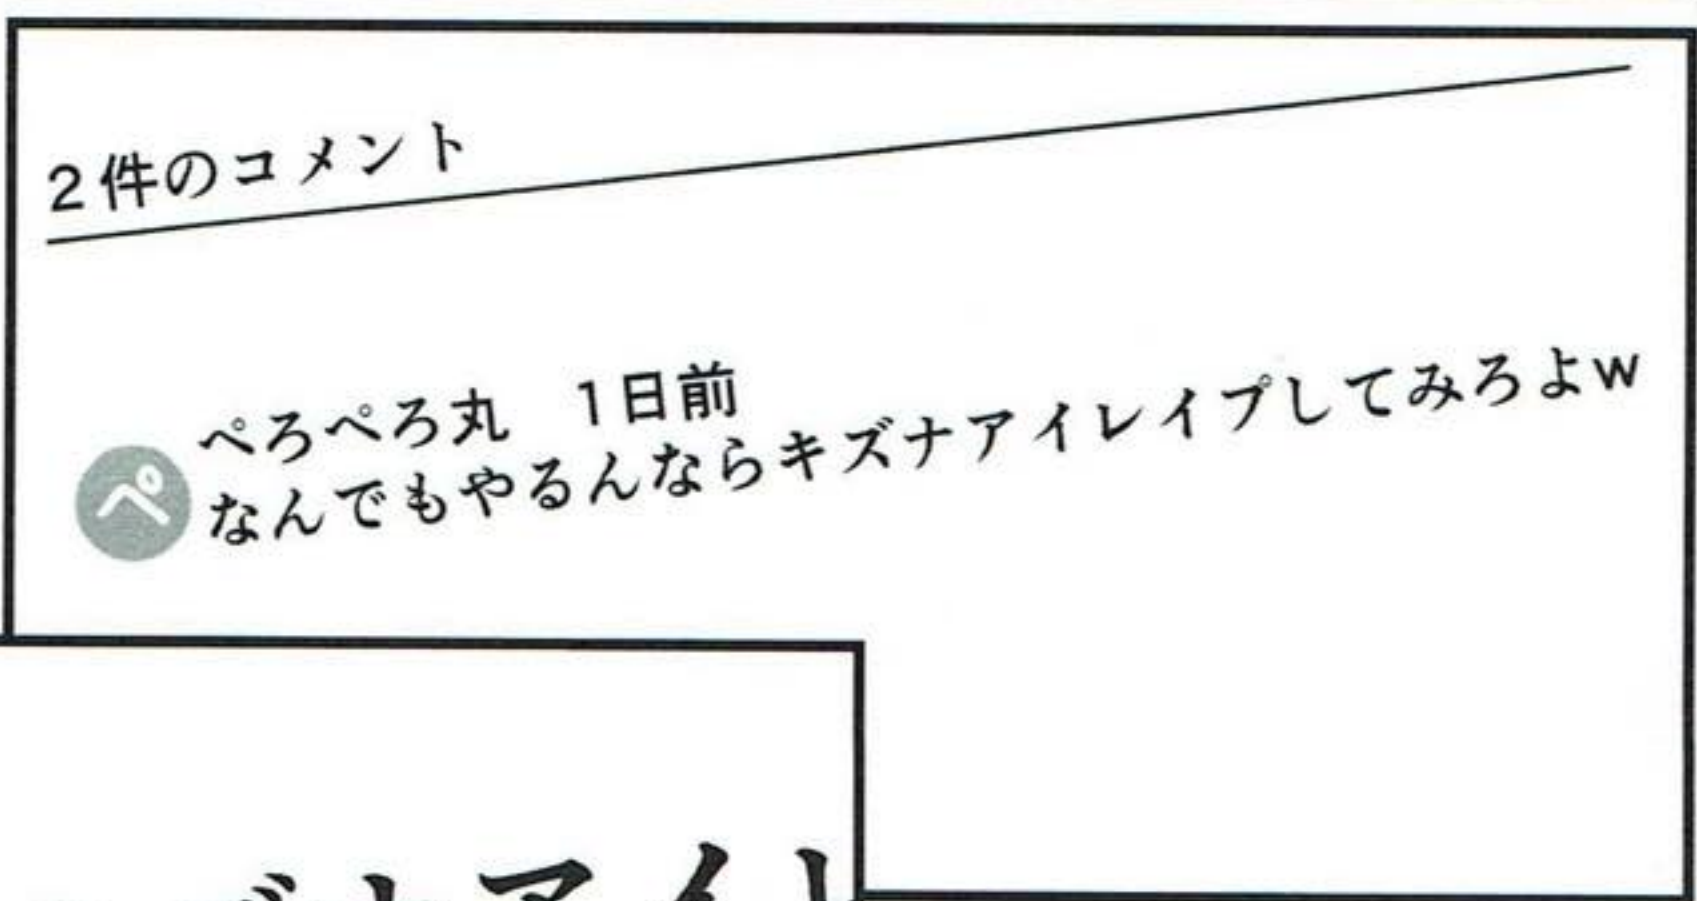 2件のコメント
ぺろぺろ丸 1日前
ぺ
なんでもやるんならキズナアイレイプしてみろよw